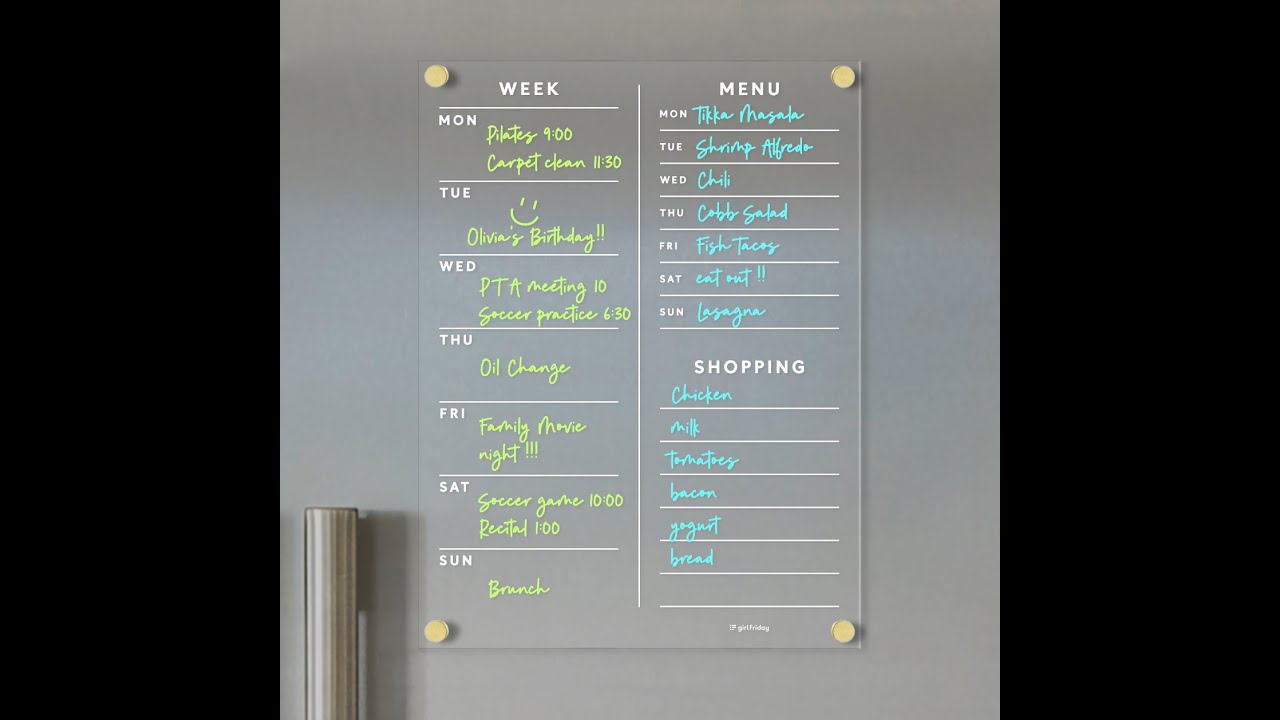 WEEK
MON
Pilates 9:00
Carpet clean 11:30
TUE
Olivia's Birthday!!
WED
PTA meeting 10
Soccer practice 6:30
THU
Oil Change
FRI
Family Movie
night !!!
SAT
Soccer game 10:00
Recital 1:00
SUN
Brunch
MENU
MON Tikka Masala
TUE Shrimp Alfredo
WED Chili
THU Cobb Salad
FRI Fish Tacos
SAT eat out !!
SUN Lasagna
SHOPPING
Chicken
milk
tomatoes
bacon
yogurt
bread
girlfriday